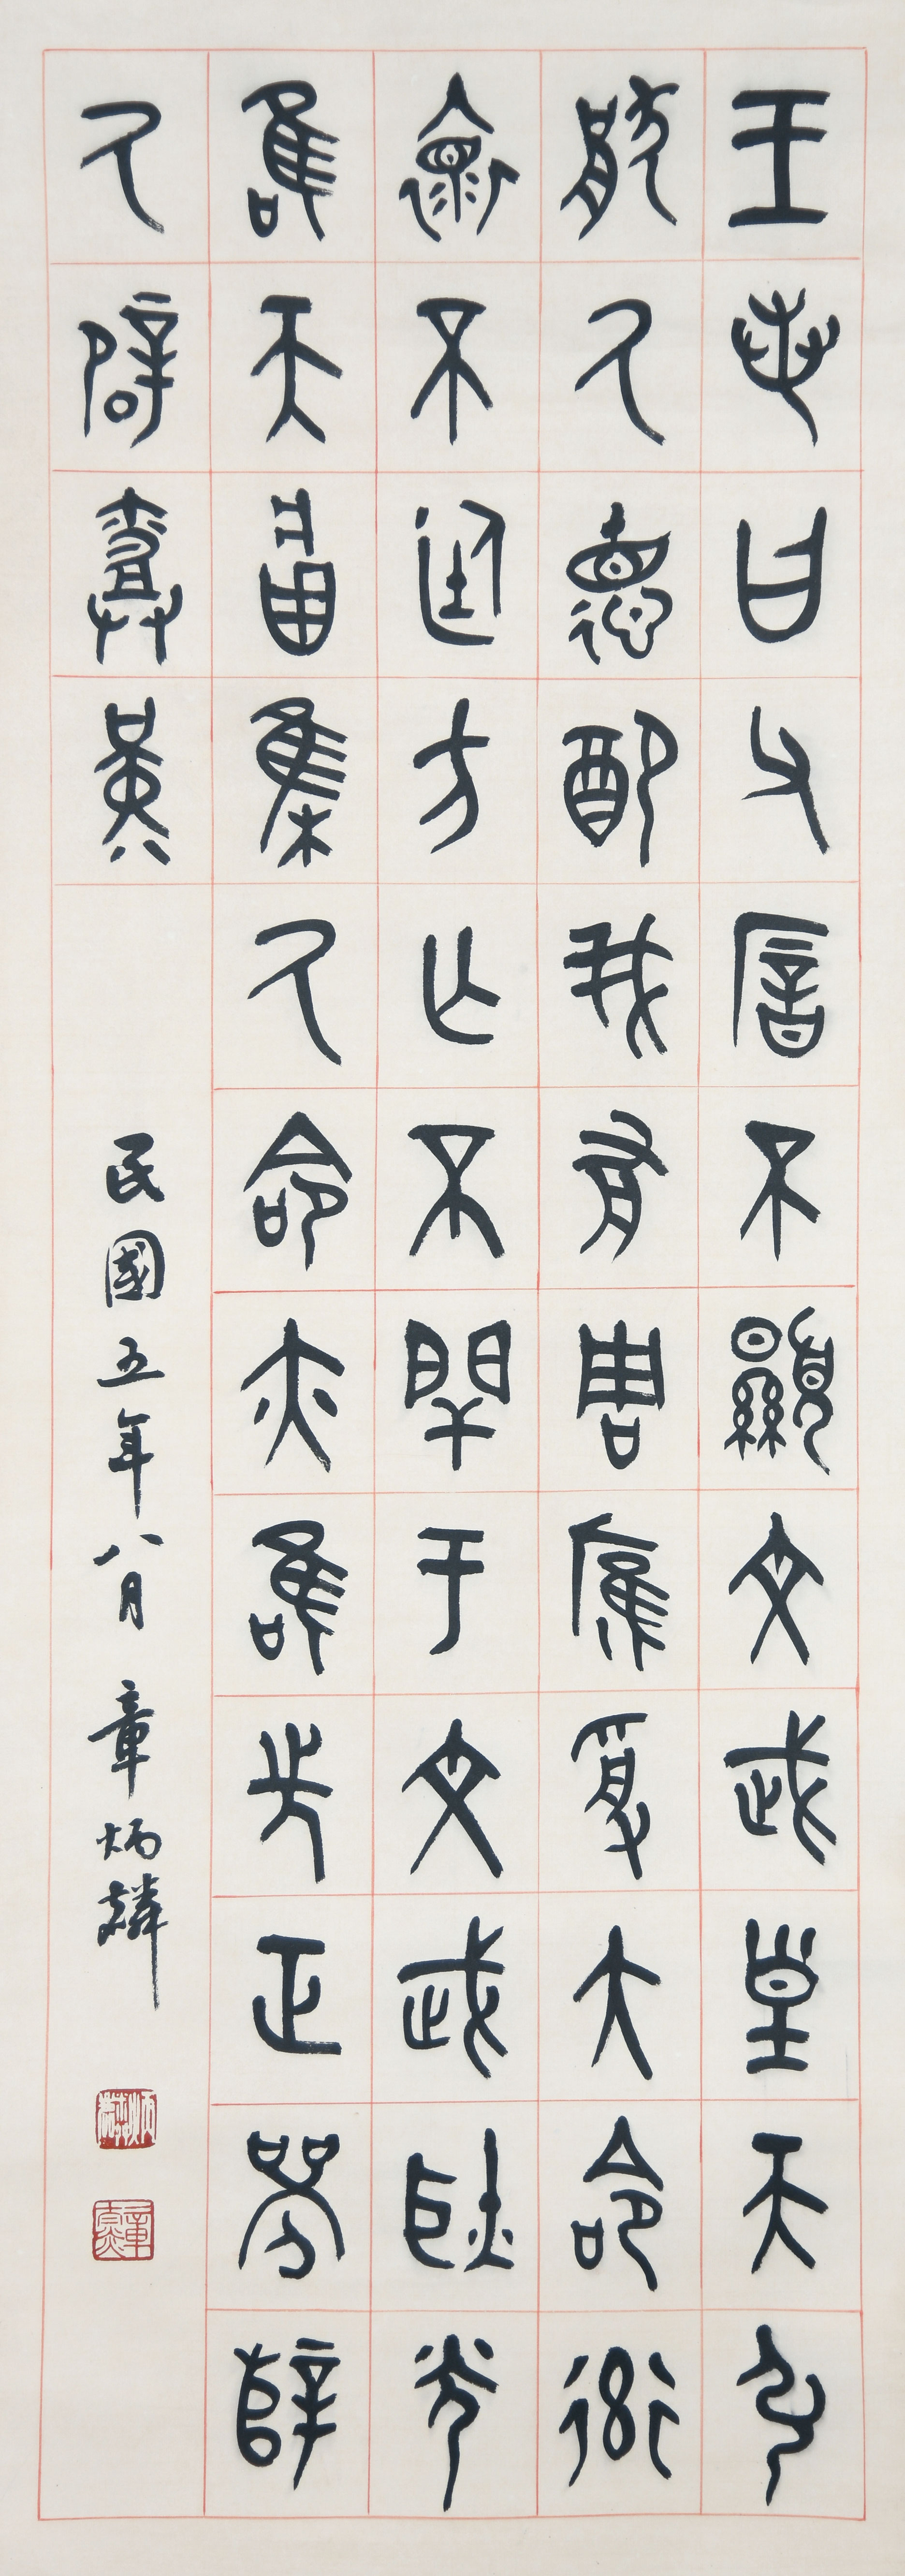 王若曰父厝不顯文武皇天弘
猒厥德配我有周膺受大命率
褱不廷方亡不閈于文武耿光
唯天將集厥命亦唯先正襄辥
厥辟堇
民國五年八月 章炳麟